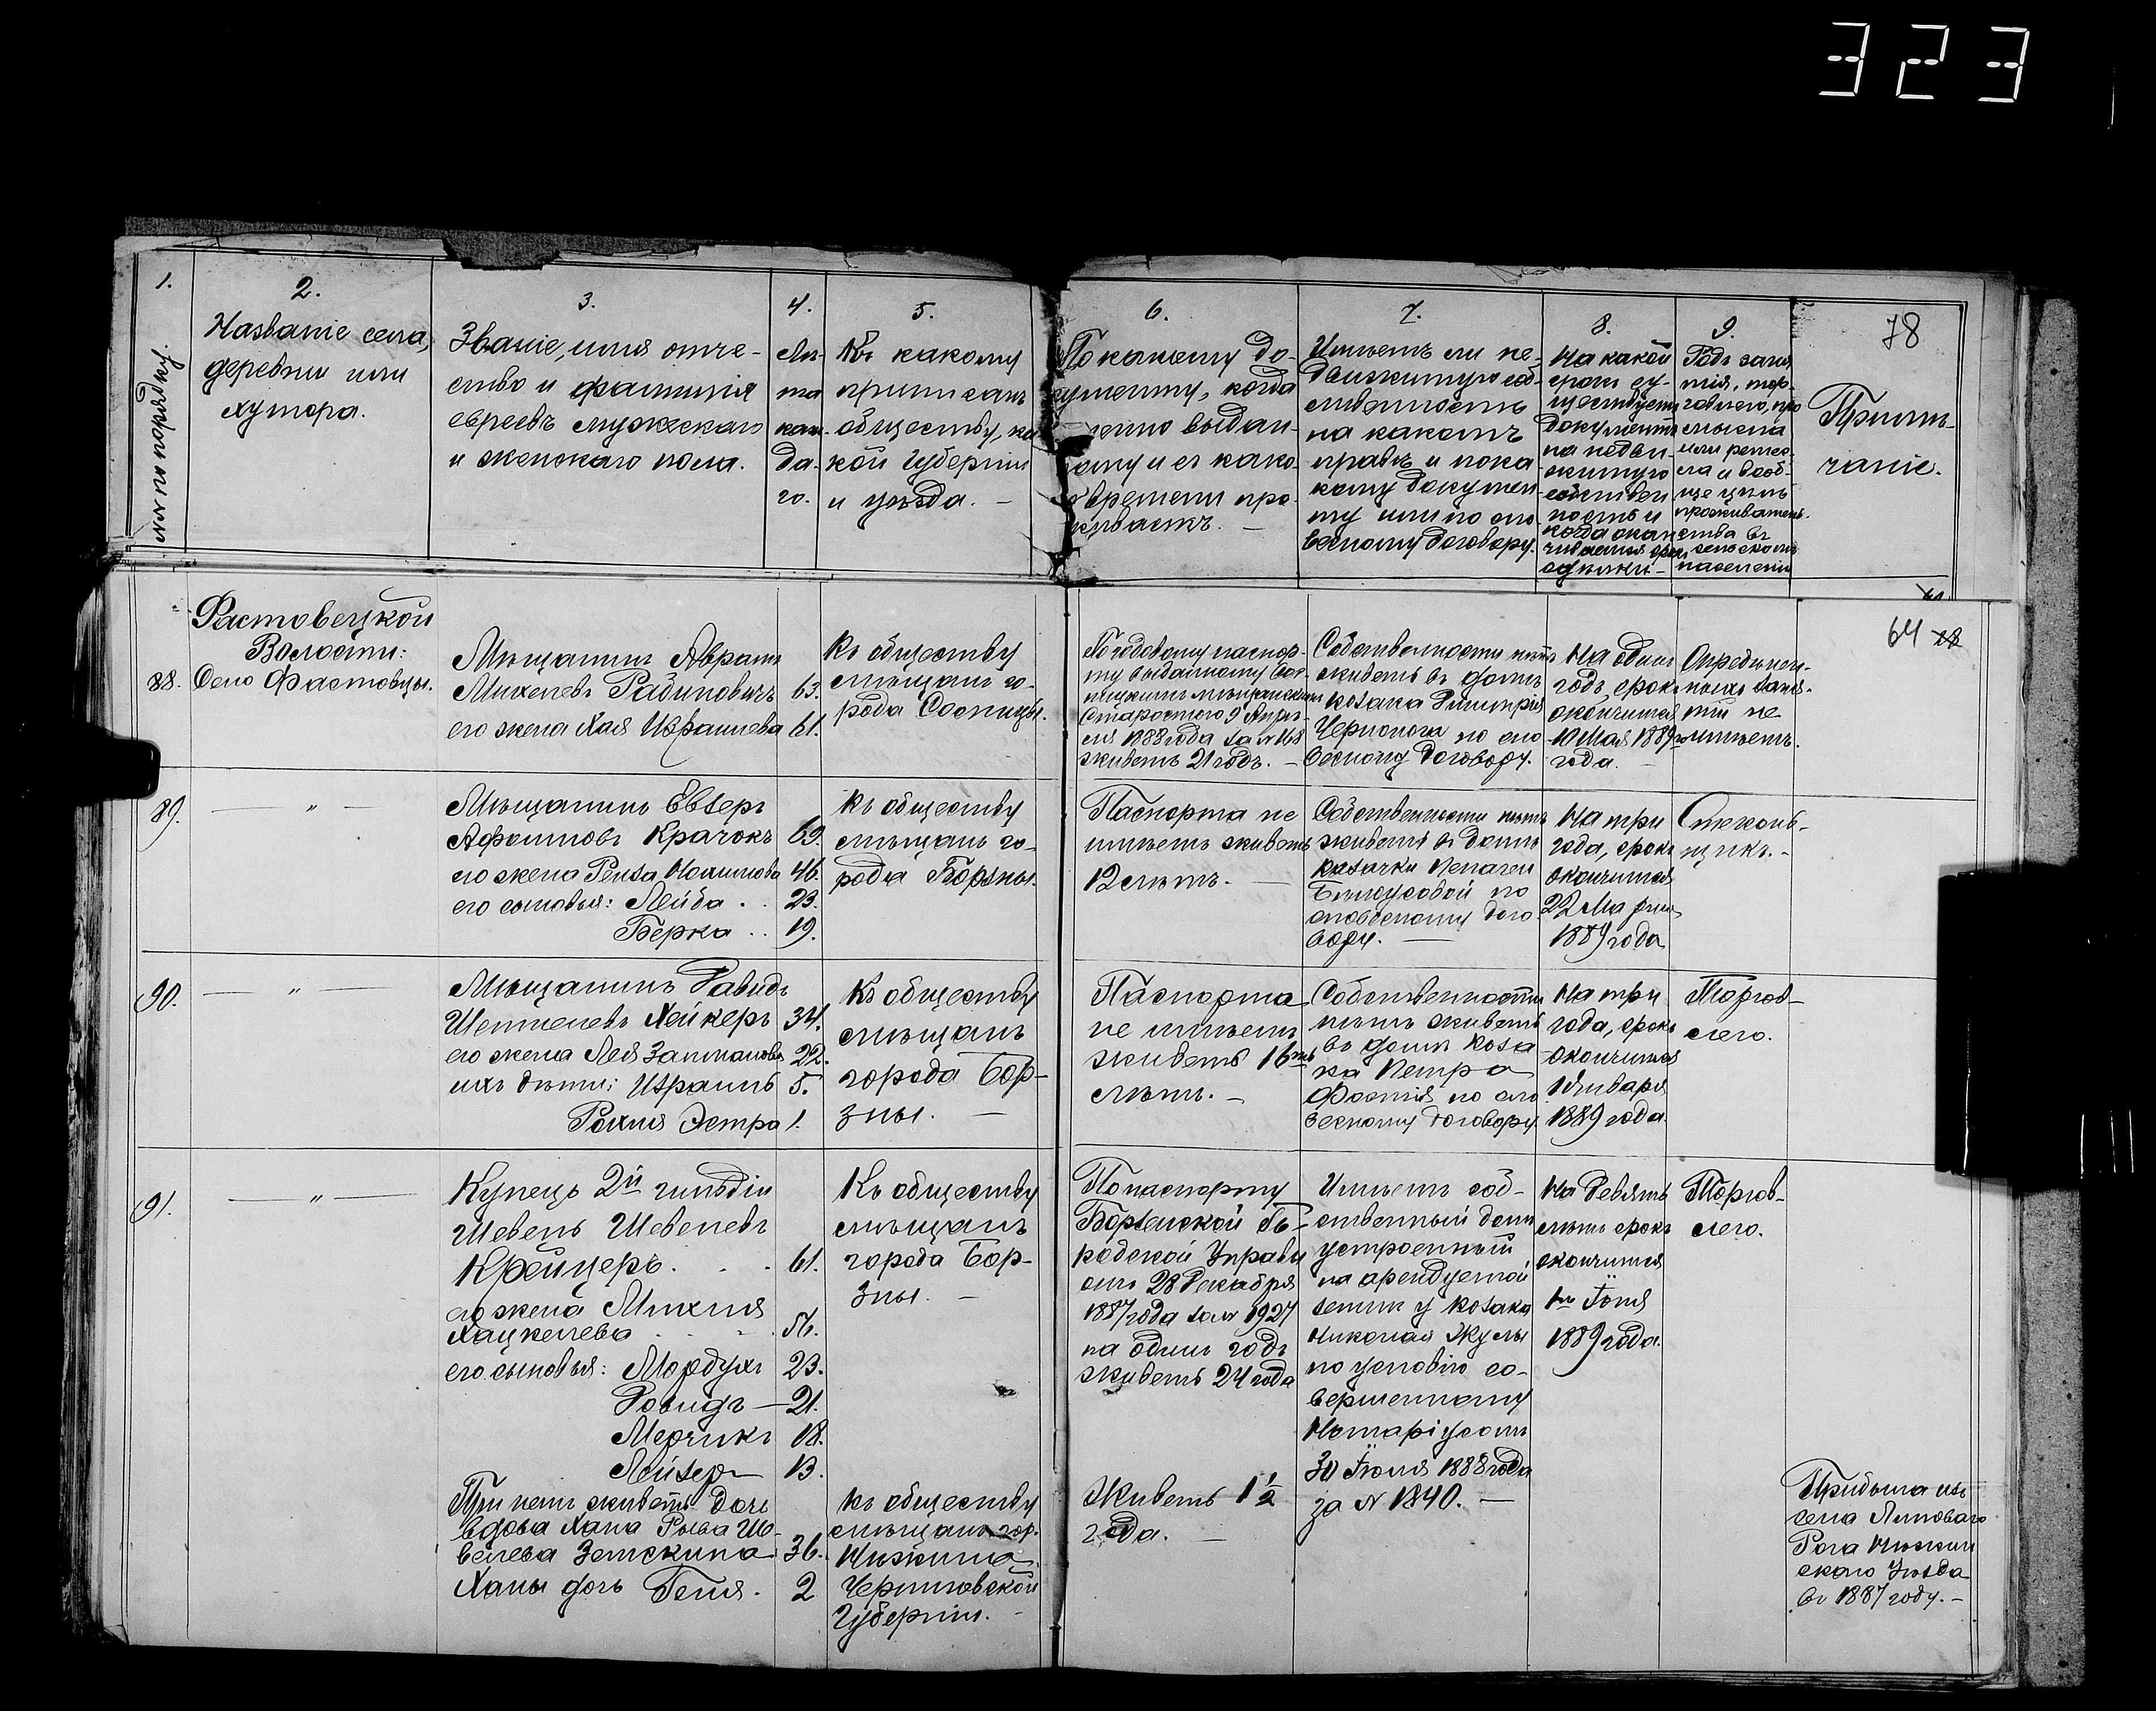 323
78
1.
№№ по порядку.
2.
Названіе села,
деревни или
хутора.
3.
Званіе, имя отче-
ство и фамилія
евреевъ мужескаго
и женскаго пола.
4.
Лѣ-
та
каж-
да-
го.
5.
Къ какому
приписанъ
обществу, ка
кой Губерніи
и уѣзда. —
6.
По какому до-
кументу, когда
выдан-
ому и съ како-
времени про-
живаетъ. —
7.
Имѣетъ ли не-
движимую соб-
ственность
на какомъ
правѣ и по ка
кому докумен
ту или по сло
весному договору.
8.
На какой
срокъ су-
ществуетъ
документъ
на недви-
жимую
собствен
ность и
когда окан
чивается срокъ
9.
Родъ заня
тія, тор-
говлею, про
мысла
или ремес-
ла и вооб-
ще цѣль
проживатель-
ства въ
сельскомъ
населеніи
Примѣ-
чаніе.
64 28
88.
Фастовецкой
Волости:
Село Фастовцы.
Мѣщанинъ Абрамъ
Михелевъ Рабиновичъ 63.
его жена Хая Исраилева 61.
Къ обществу
мѣщанъ го-
рода Сосницы.
По годовому паспор-
ту выданному Сос-
ницкимъ мѣщанскимъ
Старостою 9 Апрѣ-
ля 1888 года за № 168
живетъ 21 годъ. —
Собственности нѣтъ
живетъ въ домѣ
козака Димитрія
по сло
весному договору.
На одинъ
годъ, срокъ
окончится
10 Мая 1889
года.
Опредѣлен-
ныхъ заня-
тій не
имѣетъ.
89.
— " —
Мѣщанинъ Евзеръ
Крачокъ 69.
его жена 46.
его сыновья: Лейба . . 23.
Берка . . 19.
Къ обществу
мѣщанъ го-
рода Борзны.
Паспорта не
имѣетъ живетъ
12 лѣтъ. —
Собственности нѣтъ
живетъ въ домѣ
козачки Пелагеи
Бѣлоусовой по
словесному дого-
вору. —
На три
года, срокъ
окончится
22 Марта
1889 года
Стеколь-
щикъ. -
90.
— " —
Мѣщанинъ Давидъ
Хейкеръ 34.
его жена Лея Залмановна 22.
ихъ дѣти: Израиль 5.
Рохля Эстра 1.
Къ обществу
мѣщанъ
города Бор-
зны. —
Паспорта
не имѣетъ
живетъ 16ть
лѣтъ. —
Собственности
нѣтъ живетъ
въ домѣ коза
ка Петра
по сло
весному договору.
На три
года, срокъ
окончится
1 Января
1889 года.
Торгов-
лею.
91.
— " —
Купецъ 2й гильдіи
Шевель Шевелевъ
Крейцеръ. . . 61.
его жена Михля
Хацкелева . . . 56.
его сыновья: Мордухъ 23.
Довидъ — 21.
Мерчикъ 18.
Лейзеръ 13.
При немъ живетъ дочь
вдова Хана Рыва Ше-
велева Землкина 36.
Ханы дочь Геня. 2
Къ обществу
мѣщанъ
города Бор-
зны. —
Къ обществу
мѣщанъ гор.
Нѣжина
Черниговской
Губерніи. -
По паспорту
Борзенской Го-
родской Управы
отъ 28 Декабря
1887 года за № 1927
на одинъ годъ
живетъ 24 года
Живетъ 1 1/2
года. —
Имѣетъ соб-
ственный домъ
устроенный
на арендуемой
земли у козака
Николая Жулы
по условію со-
вершенному
Нотаріусомъ
30 Іюля 1888 года
за № 1840. —
На девять
лѣтъ срокъ
окончится
1го Іюля
1889 года.
Торгов-
лею.
Прибыла изъ
села Липоваго
Рога Нѣжин
скаго Уѣзда
въ 1887 году. —